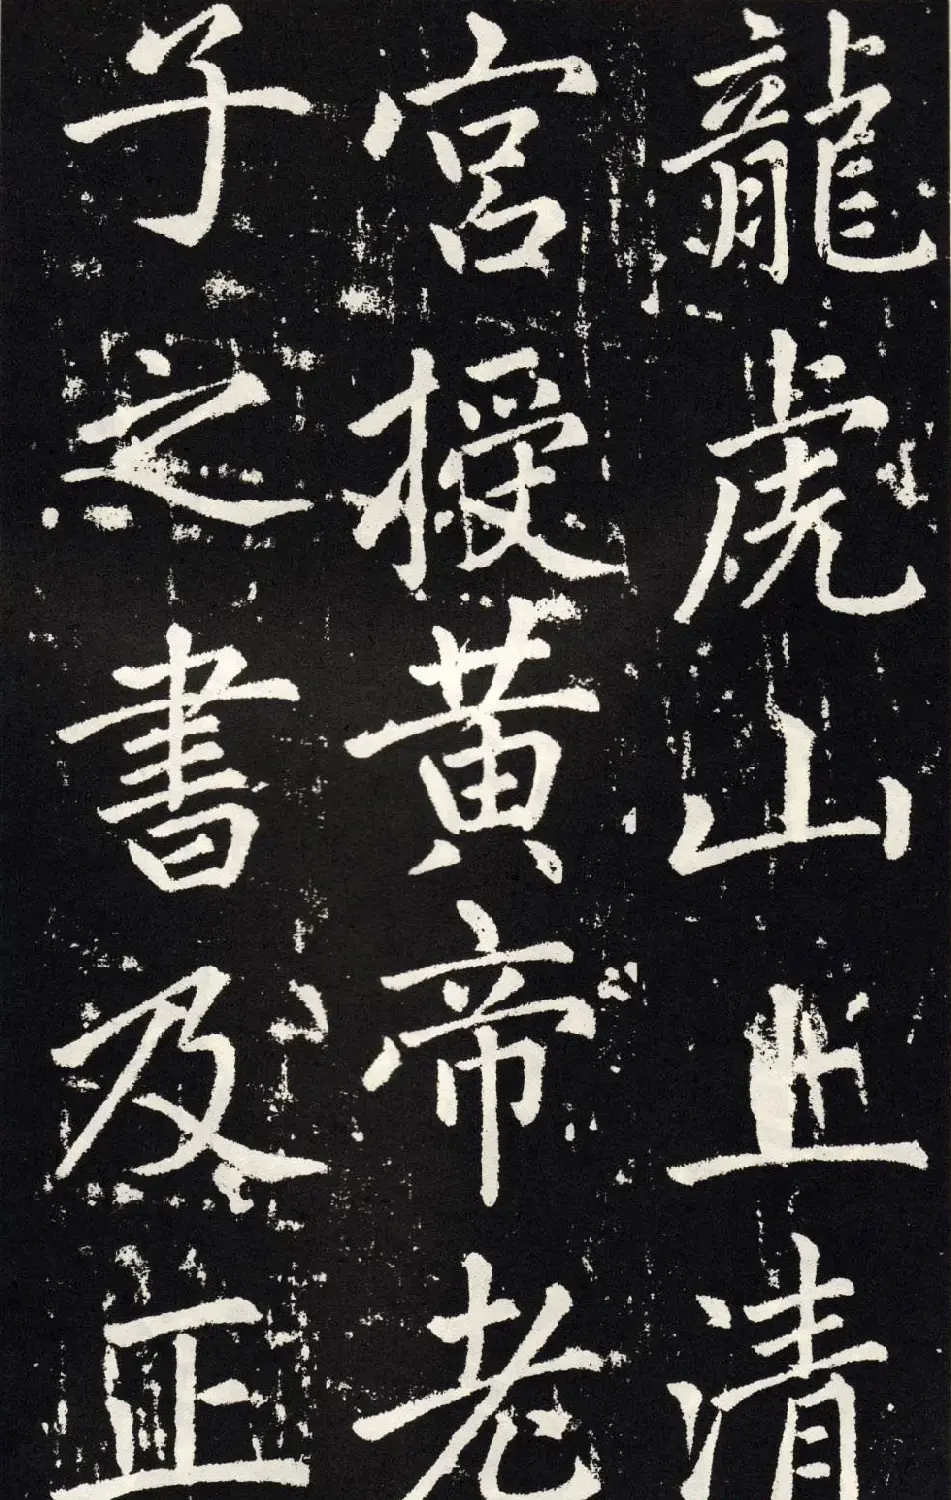 龍虎山上清
宮授黄帝老
子之書及正